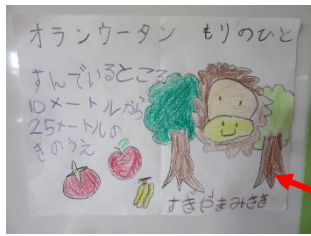 オランウータン　もりのひと
すんでいるところ
10メートルから
25メートルの
きのうえ
すぎやまみさき